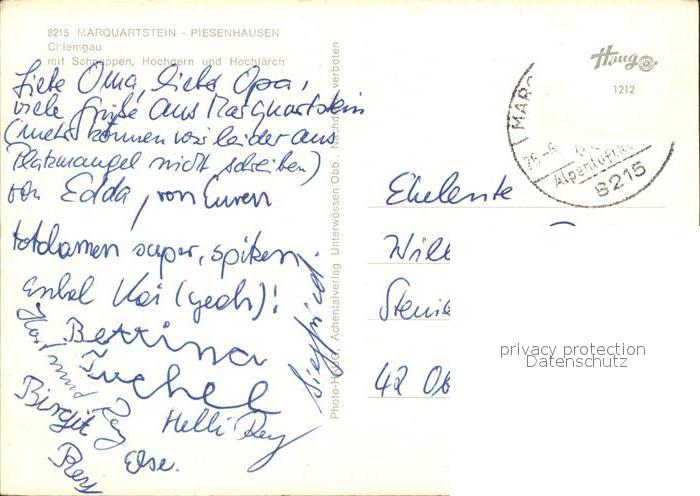 8215 MARQUARTSTEIN - PIESENHAUSEN
Chiemgau
mit Schnappen, Hochgern und Hochlärch
Liebe Oma, lieber Opa,
viele Grüße aus Marquartstein
(mehr können wir leider aus
Platzmangel nicht schreiben)
von Edda, von Eurem
totdamen super, spitzen
enkel Kai (yeah)!
Bettina
Fuchel
Hartmund Rey
Birgit
Rey
Else.
Helli Rey
Siegfried.
Photo-Haug, Achentalverlag Unterwössen Obb. Nachdruck verboten
Haug
1212
MARQ
26.-6
Alpenluftku
8215
Eheleute
Will
42 Ob
privacy protection
Datenschutz